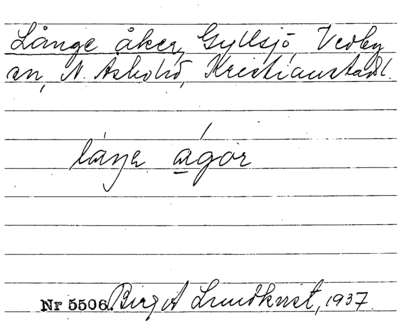 Långe åker, Gyllsjö, Vedby
sn, N. Åsbohd, Kristianstadl.
långe ágor
Nr 5506. Birgit Lundkvist, 1937